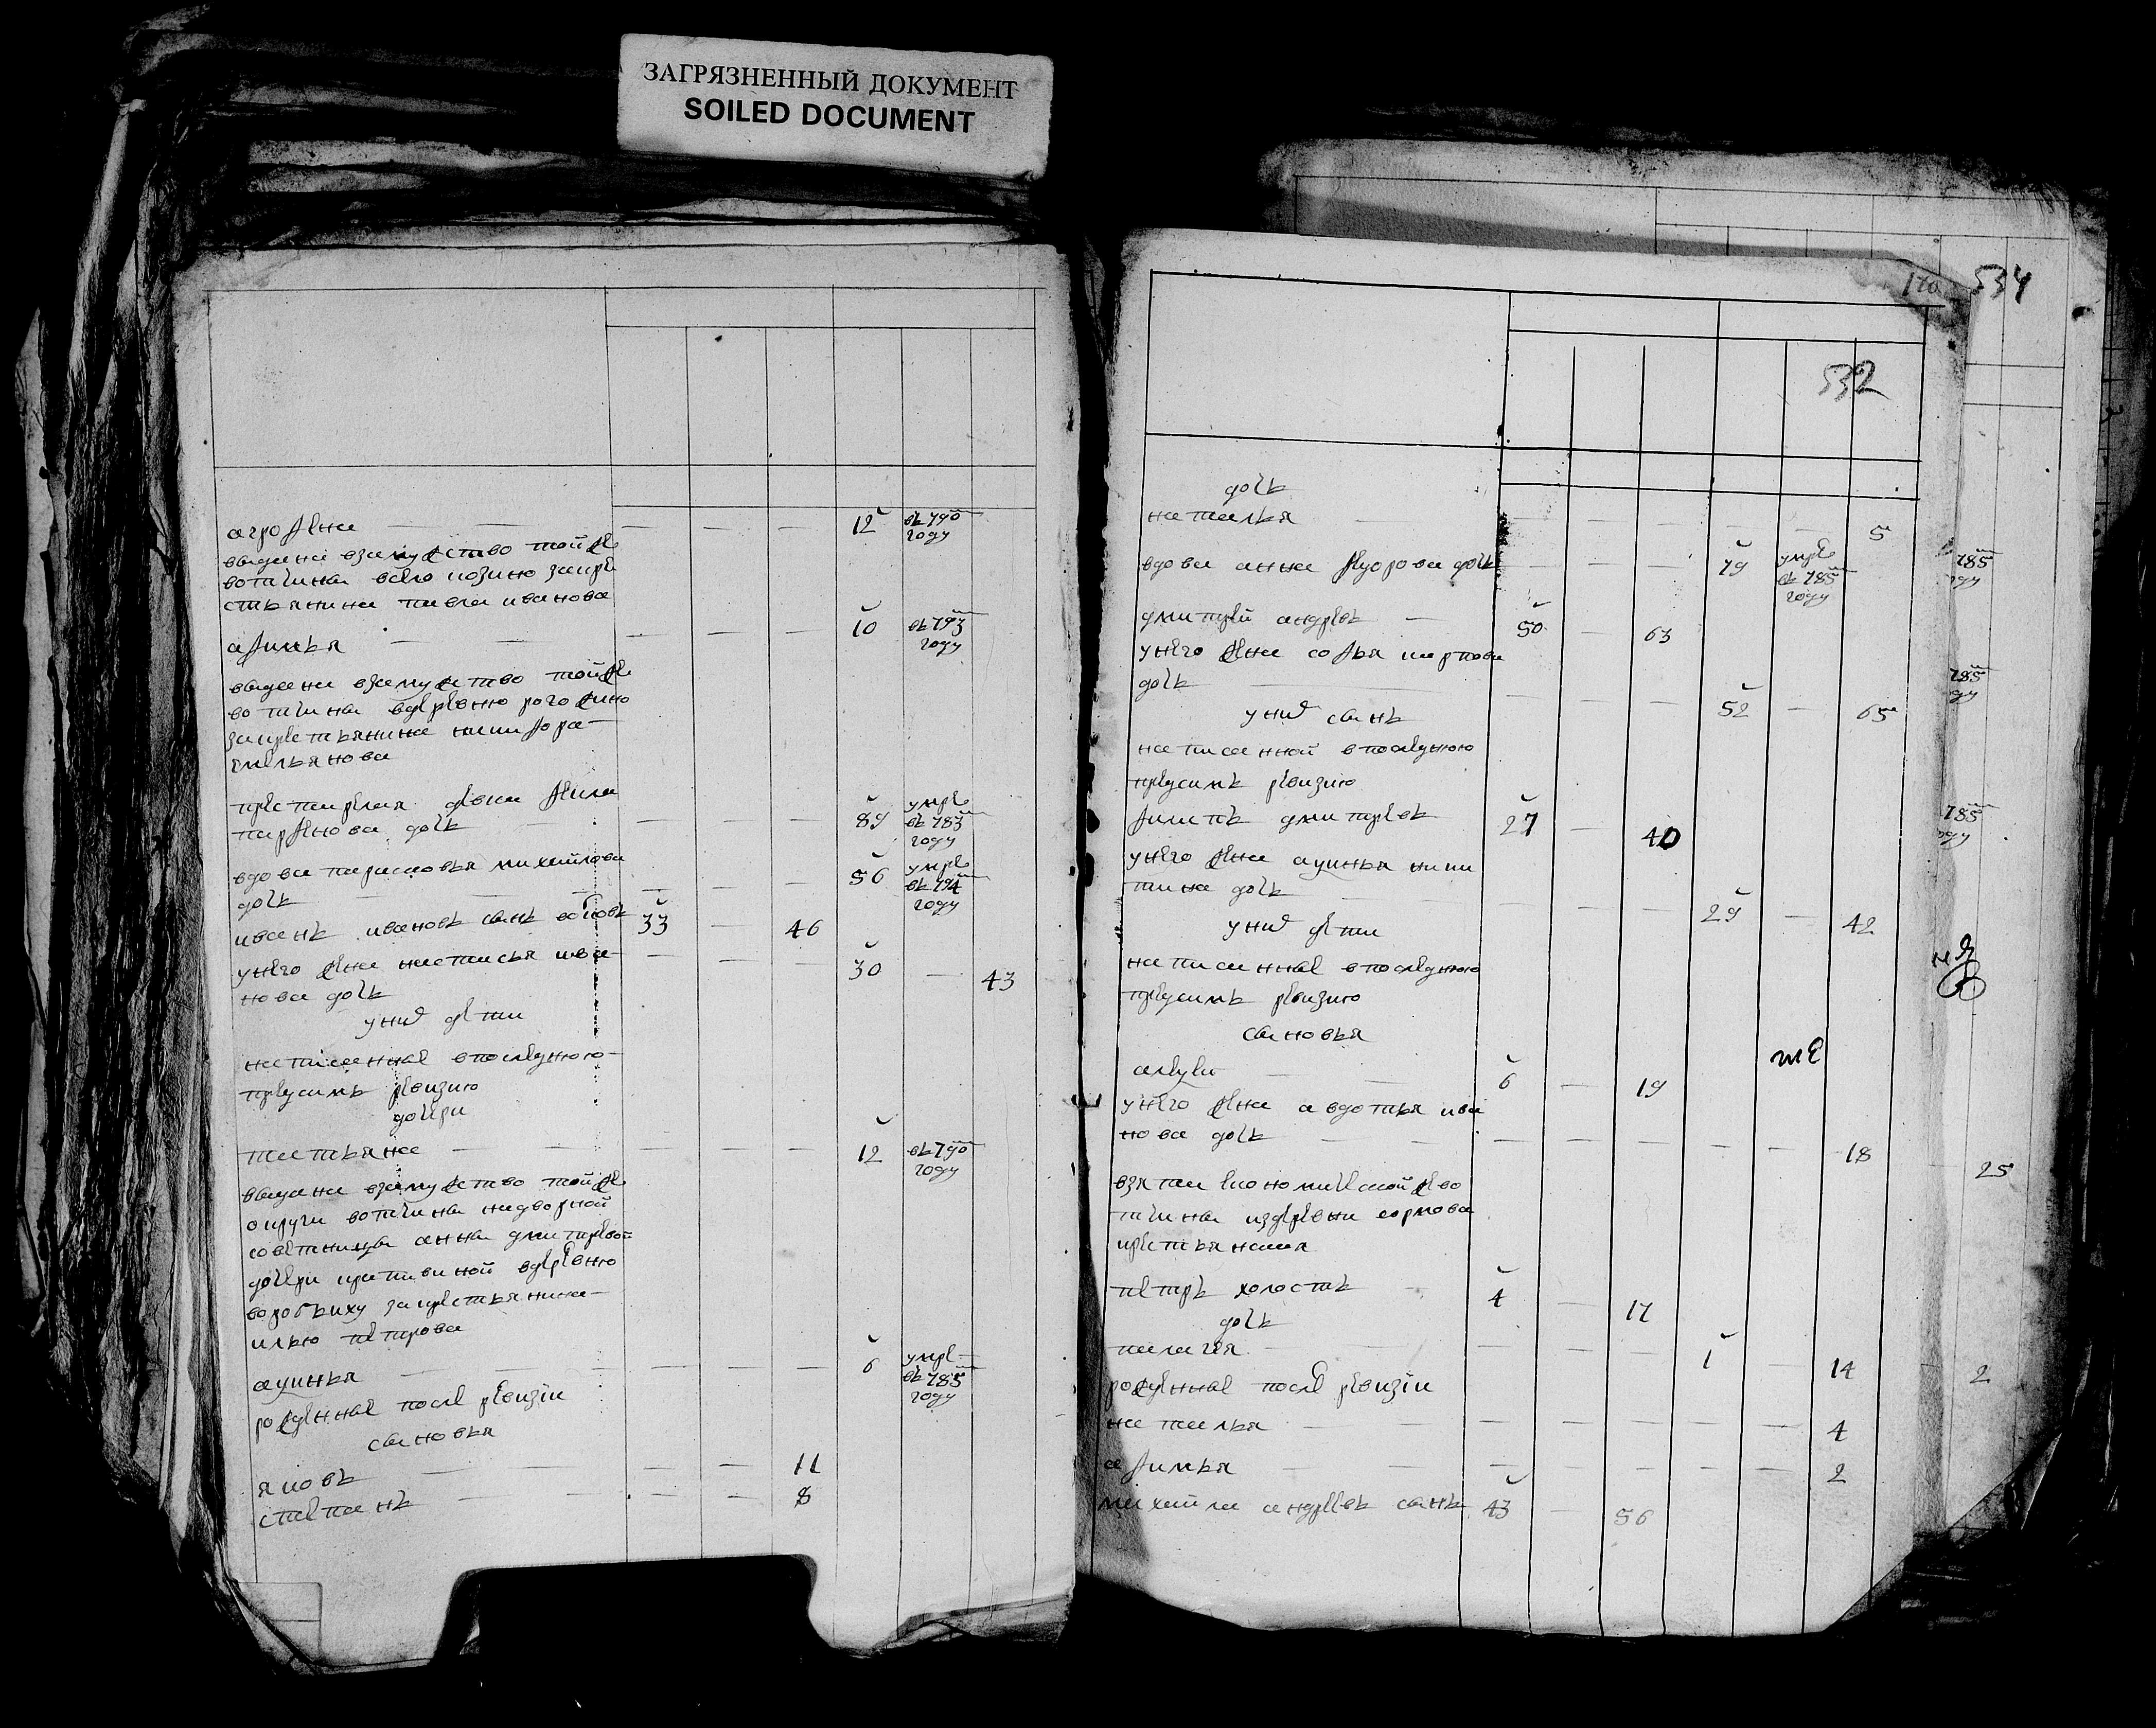 ЗАГРЯЗНЕННЫЙ ДОКУМЕНТ
SOILED DOCUMENT
агрофена — — — — 12 въ 790 году
выдана взамужство тойже
вотчины всело
стьянина павла иванова
афимья — — — — 10 въ 793 году
выдана взамужство тойже
вотчины вдеревню рогожино
закрестьянина никифора
емельянова
престарелая девка
парфенова дочь — — — 89 умре въ 783 году
вдова парасковья михайлова
дочь — — — 56 умре въ 794 году
иванъ ивановъ сынъ 33 — 46
унего жена настасья ива
нова дочь — — — 30 — 43
уних дети
написанные впоследнюю
предсимъ ревизию
дочери
татьяна — — — — 12 въ 790 году
выдана взамужство тойже
округи вотчины надворной
советницы анны дмитревой
дочери вдеревню
воробьиху закрестьянина
илью петрова
акулина — — — — 6 умре въ 785 году
рожденные после ревизіи
сыновья
яковъ — — — 11
степанъ — — — 8
170
534
532
дочь
наталья — — — — 5
вдова анна федорова дочь — — — 79 умре въ 785 году
дмитрей андревъ — 50 — 63
унего жена софья карпова
дочь — — — — 52 — 65
уних сынъ
написанной впоследнюю
предсимъ ревизию
филипъ дмитревъ 27 — 40
унего жена акулина ники
тина дочь — — — — 29 — 42
уних дети
написанные впоследнюю
предсимъ ревизию
сыновья
алексей — 6 — 19
те
унего жена авдотья ива
нова дочь — — — — — — 18
взята економической во
тчины издеревни
крестьянская
петръ холостъ — 4 — 17
дочь
палагея — — — — 1 — 14
рожденные после ревизіи
наталья — — — — — — 4
афимья — — — — — — 2
михайла андреевъ сынъ 43 — 56
785
году
785
785
25
2